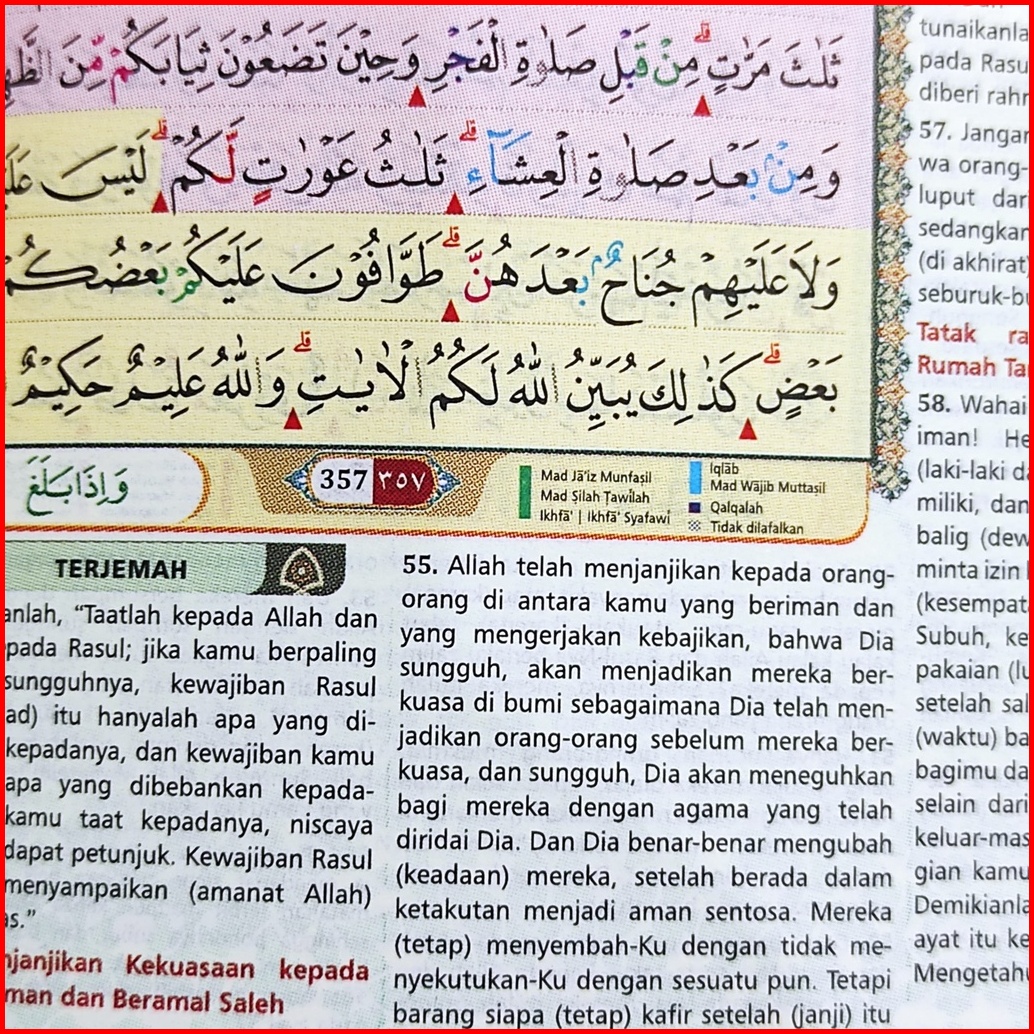 ثَلٰثَ مَرّٰتٍۗ مِنْ قَبْلِ صَلٰوةِ الْفَجْرِ وَحِيْنَ تَضَعُوْنَ ثِيَابَكُمْ مِّنَ
وَمِنْۢ بَعْدِ صَلٰوةِ الْعِشَاۤءِۗ ثَلٰثُ عَوْرٰتٍ لَّكُمْۗ لَيْسَ
وَلَا عَلَيْهِمْ جُنَاحٌۢ بَعْدَهُنَّۗ طَوَّافُوْنَ عَلَيْكُمْ بَعْضُكُمْ
بَعْضٍۗ كَذٰلِكَ يُبَيِّنُ اللّٰهُ لَكُمُ الْاٰيٰتِۗ وَاللّٰهُ عَلِيْمٌ حَكِيْمٌ
وَاِذَا بَلَغَ
357 ٣٥٧
Mad Jā'iz Munfaṣil
Mad Ṣilah Ṭawīlah
Ikhfā' | Ikhfā' Syafawī
Iqlāb
Mad Wājib Muttaṣil
Qalqalah
Tidak dilafalkan
TERJEMAH
anlah, “Taatlah kepada Allah dan
pada Rasul; jika kamu berpaling
sungguhnya, kewajiban Rasul
ad) itu hanyalah apa yang di-
kepadanya, dan kewajiban kamu
apa yang dibebankan kepada-
kamu taat kepadanya, niscaya
dapat petunjuk. Kewajiban Rasul
menyampaikan (amanat Allah)
as.”
njanjikan Kekuasaan kepada
man dan Beramal Saleh
55. Allah telah menjanjikan kepada orang-
orang di antara kamu yang beriman dan
yang mengerjakan kebajikan, bahwa Dia
sungguh, akan menjadikan mereka ber-
kuasa di bumi sebagaimana Dia telah men-
jadikan orang-orang sebelum mereka ber-
kuasa, dan sungguh, Dia akan meneguhkan
bagi mereka dengan agama yang telah
diridai Dia. Dan Dia benar-benar mengubah
(keadaan) mereka, setelah berada dalam
ketakutan menjadi aman sentosa. Mereka
(tetap) menyembah-Ku dengan tidak me-
nyekutukan-Ku dengan sesuatu pun. Tetapi
barang siapa (tetap) kafir setelah (janji) itu
tunaikanla
pada Rasu
diberi rahr
57. Jangar
wa orang-
luput dar
sedangkar
(di akhirat
seburuk-bu
Tatak ra
Rumah Ta
58. Wahai
iman! He
(laki-laki da
miliki, dan
balig (dew
minta izin
(kesempat
Subuh, ke
pakaian (lu
setelah sal
(waktu) ba
bagimu da
selain dari
keluar-mas
gian kamu
Demikianla
ayat itu ke
Mengetahu